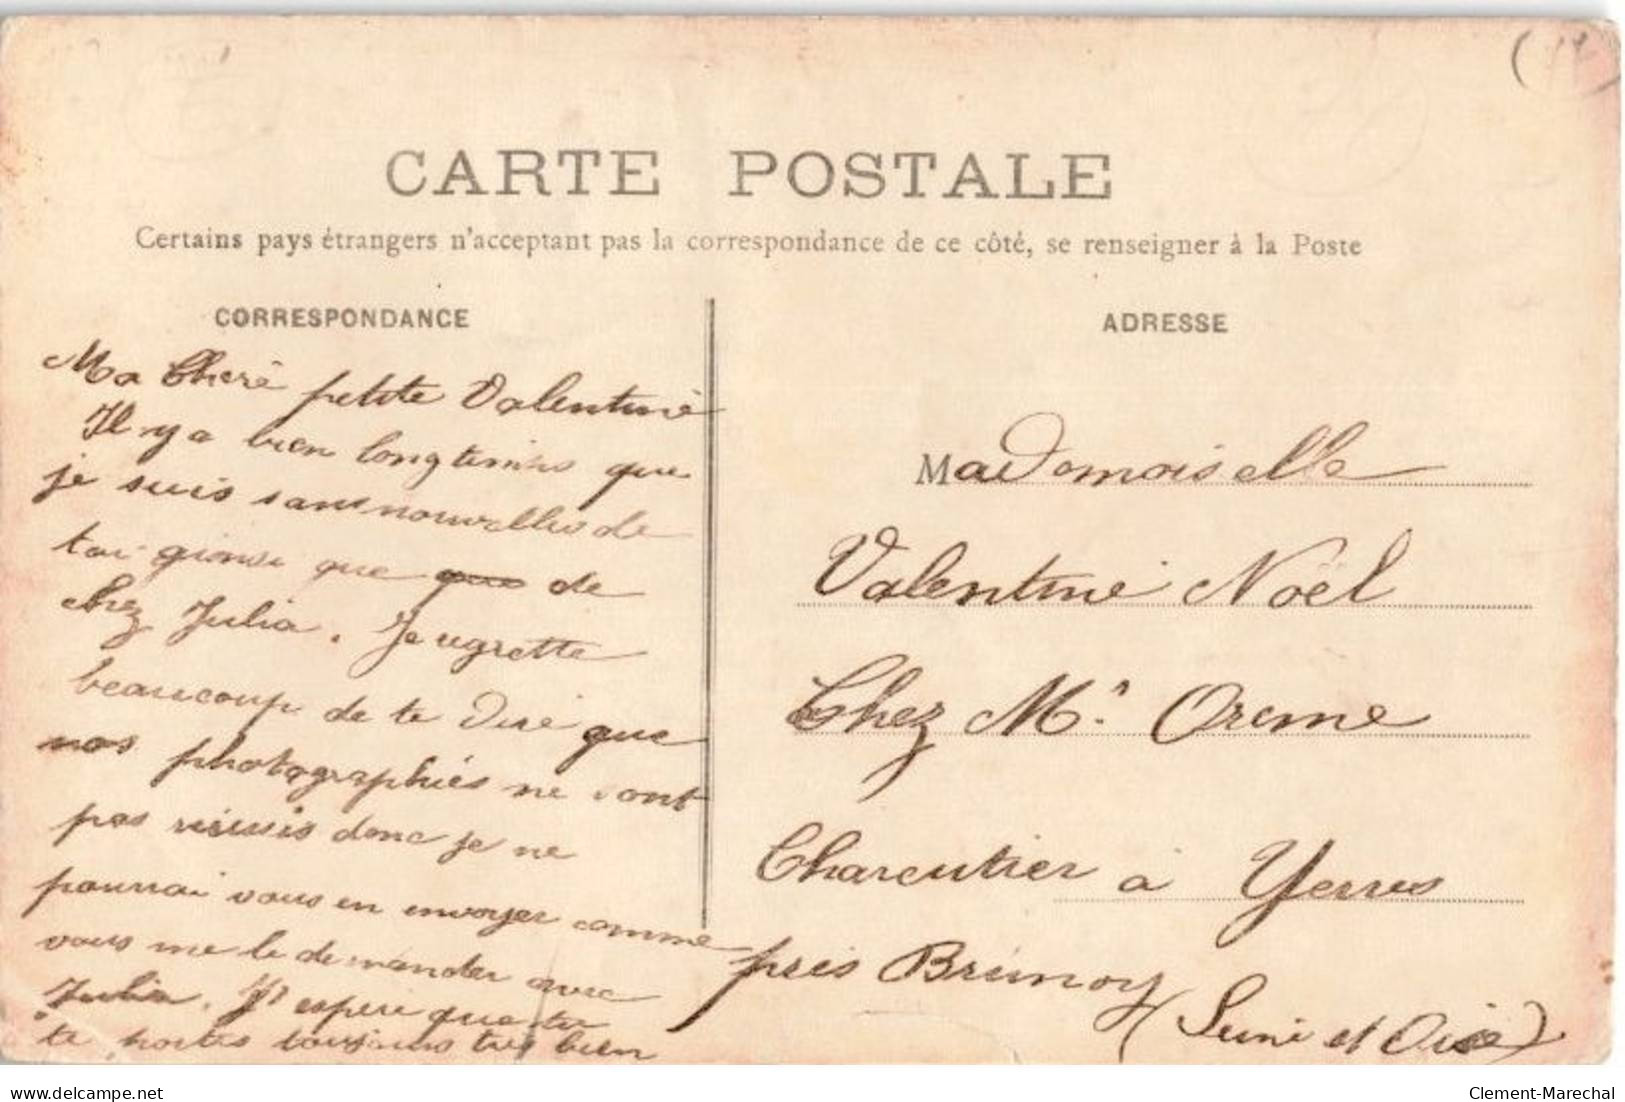 CARTE POSTALE
Certains pays étrangers n'acceptant pas la correspondance de ce côté, se renseigner à la Poste
CORRESPONDANCE
Ma Cheré petite Valentiné
Il y a bien longtemps que
je suis sans nouvelles de
toi ainsi que que de
chez Julia. Je regrette
beaucoup de te diré que
nos photographiés ne sont
pas réussis donc je ne
pourrai vous en envoyer comme
vous me le demander avec
Julia. J'espere que tu
te portes toujours tres bien
ADRESSE
Mademoiselle
Valentiné Noël
Chez Mr. Oreme
Charcutier à Yerres
près Brunoy
(Seine et Oise)
delcampe.net
Clement-Marechal